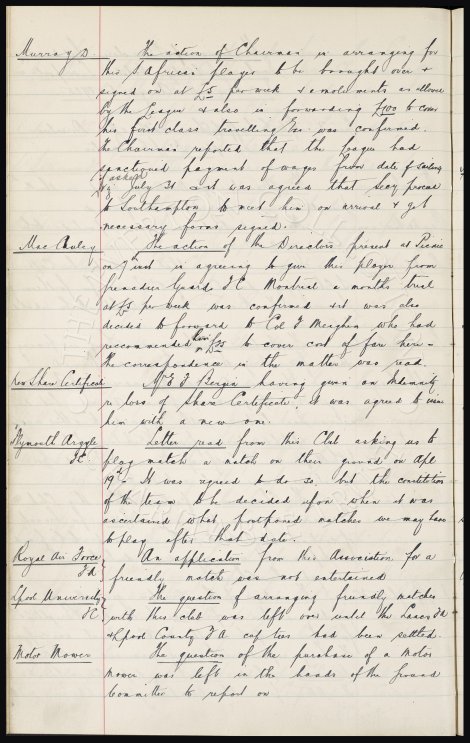 Murray D. The action of Chairman in arranging for
this S African player to be brought over &
signed on at £5 per week & emoluments as allowed
by the League & also in forwarding £100 to cover
his first class travelling Exs. was confirmed.
The Chairman reported that the League had
sanctioned payment of wages from date of sailing
July 31 & it was agreed that Secy proceed
to Southampton to meet him on arrival & get
necessary forms signed.
Mac Auley The action of the Directors present at Picnic
on 7 inst in agreeing to give this player from
Grenadier Guard F.C. Montreal a months trial
at £5 per week was confirmed & it was also
decided to forward to Col F Meighen who had
recommended him £35 to cover cost of fare here –
The correspondence in the matter was read.
New Share Certificate Mr E J Bergin having given an Indemnity
re loss of Share Certificate, it was agreed to issue
him with a new one.
Plymouth Argyle Letter read from this Club asking us to
F.C. play match a match on their ground on Apl
19th – It was agreed to do so but the constitution
of the team to be decided upon when it was
ascertained what postponed matches we may have
to play after that date.
Royal Air Force An application from this Association for a
F A friendly match was not entertained
Lpool University The question of arranging friendly matches
F C with this club was left over until the Lancs F A
& Lpool County F A cup ties had been settled.
Motor Mower The question of the purchase of a Motor
mower was left in the hands of the Ground
Committee to report on